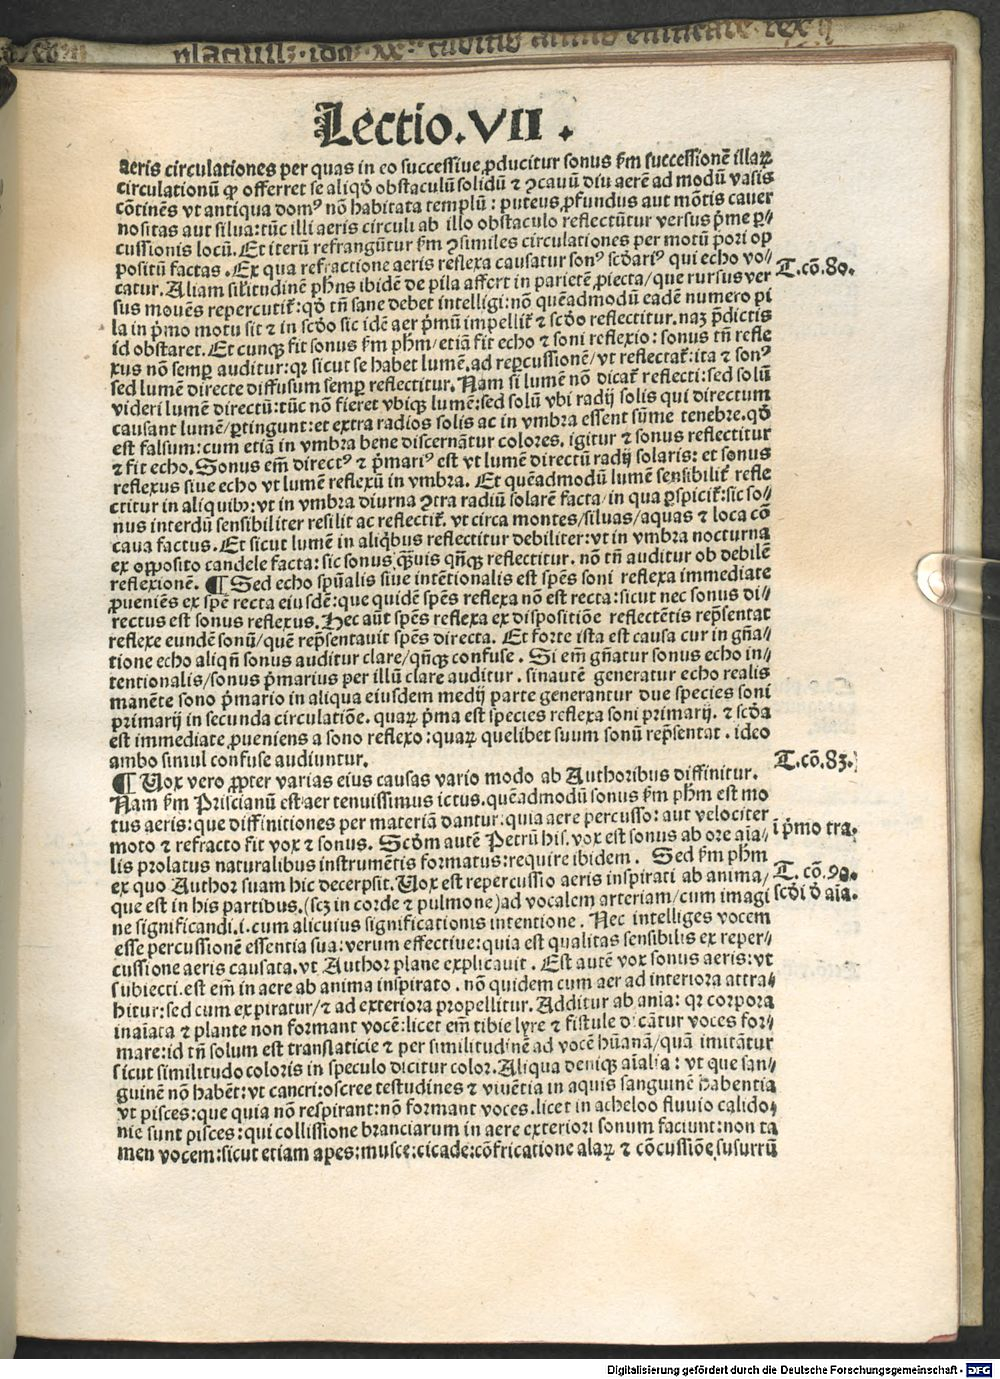 Lectio.VII.
aeris circulationes per quas in eo successiue ꝓducitur sonus ẜm successionē illaꝝ
circulationū ꝙ offerret se aliqđ obstaculū solidū ⁊ ꝯcauū diu aerē ad modū vasis
cōtinēs vt antiqua domꝰ nō habitata templū: puteus ꝓfundus aut mōtis cauer
nositas aut silua: tūc illi aeris circuli ab illo obstaculo reflectūtur versus p̄me ꝑ⸗
cussionis locū. Et iterū refrangūtur ẜm ꝯsimiles circulationes per motū pori op
positū factas. Ex qua refractione aeris reflexa causatur sonꝰ scđariꝰ qui echo vo⸗
catur. Aliam silr̄itudinē ph̄ns ibidē de pila affert in parietē ꝓiecta/que rursus ver
sus mouēs repercutit̄: qđ tn̄ sane debet intelligi: nō quēadmodū eadē numero pi
la in p̄mo motu sit ⁊ in scđo sic idē aer p̄mū impellit̄ ⁊ scđo reflectitur. naꝫ p̄dictis
id obstaret. Et cunqꝫ fit sonus ẜm ph̄m/etiā fit echo ⁊ soni reflexio: sonus tn̄ refle
xus nō semꝑ auditur: qꝛ sicut se habet lumē. ad reꝑcussionē/vt reflectat̄: ita ⁊ sonꝰ
sed lumē directe diffusum semꝑ reflectitur. Nam si lumē nō dicat̄ reflecti: sed solū
videri lumē directū: tūc nō fieret vbiqꝫ lumē: sed solū vbi radij solis qui directum
causant lumē/ꝑtingunt: et extra radios solis ac in vmbra essent sūme tenebre. qđ
est falsum: cum etiā in vmbra bene discernātur colores. igitur ⁊ sonus reflectitur
⁊ fit echo. Sonus em̄ directꝰ ⁊ p̄mariꝰ est vt lumē directū radij solaris: et sonus
reflexus siue echo vt lumē reflexū in vmbra. Et quēadmodū lumē sensibilit̄ refle
ctitur in aliquibꝰ: vt in vmbra diurna ꝯtra radiū solarē facta/in qua ꝑspicit̄: sic so⸗
nus interdū sensibiliter resilit ac reflectit̄. vt circa montes/siluas/aquas ⁊ loca cō
caua factus. Et sicut lumē in aliqͥbus reflectitur debiliter: vt in vmbra nocturna
ex opposito candele facta: sic sonus qͣuis qn̄qꝫ reflectitur. nō tn̄ auditur ob debilē
reflexionē. ¶ Sed echo spūalis siue intētionalis est spēs soni reflexa immediate
ꝓueniēs ex spē recta eiusdē: que quidē spēs reflexa nō est recta: sicut nec sonus di⸗
rectus est sonus reflexus. Hec aūt spēs reflexa ex dispositiōe reflectētis rep̄sentat
reflexe eundē sonū/quē rep̄sentauit spēs directa. Et forte ista est causa cur in gn̄a⸗
tione echo aliqn̄ sonus auditur clare/qn̄qꝫ confuse. Si em̄ gn̄atur sonus echo in⸗
tentionalis/sonus p̄marius per illū clare auditur. sinautē generatur echo realis
manēte sono p̄mario in aliqua eiusdem medij parte generantur due species soni
primarij in secunda circulatiōe. quaꝝ p̄ma est species reflexa soni primarij. ⁊ scđa
est immediate ꝓueniens a sono reflexo: quaꝝ quelibet suum sonū rep̄sentat. ideo
ambo simul confuse audiuntur.
¶ Vox vero ꝓpter varias eius causas vario modo ab Authoribus diffinitur.
Nam ẜm Priscianū est aer tenuissimus ictus. quēadmodū sonus ẜm ph̄m est mo
tus aeris: que diffinitiones per materiā dantur. quia aere percusso: aut velociter
moto ⁊ refracto fit vox ⁊ sonus. Scđm autē Petrū his. vox est sonus ab ore aīa⸗
lis prolatus naturalibus instrumētis formatus: require ibidem. Sed ẜm ph̄m
ex quo Author suam hic decerpsit. Vox est repercussio aeris inspirati ab anima/
que est in his partibus. (scꝫ in corde ⁊ pulmone) ad vocalem arteriam/cum imagi
ne significandi. i. cum alicuius significationis intentione. Nec intelliges vocem
esse percussionē essentia sua: verum effectiue: quia est qualitas sensibilis ex reper⸗
cussione aeris causata. vt Author plane explicauit. Est autē vox sonus aeris: vt
subiecti. est em̄ in aere ab anima inspirato. nō quidem cum aer ad interiora attra⸗
hitur: sed cum expiratur/⁊ ad exteriora propellitur. Additur ab aīa: qꝛ corpora
inaīata ⁊ plante non formant vocē: licet em̄ tibie lyre ⁊ fistule dicātur voces for⸗
mare: id tn̄ solum est translaticie ⁊ per similitudinē ad vocē hūanā/quā imitātur
sicut similitudo coloris in speculo dicitur color. Aliqua deniqꝫ aīalia: vt que san⸗
guinē nō habēt: vt cancri: oscree testudines ⁊ viuētia in aquis sanguinē habentia
vt pisces: que quia nō respirant: nō formant voces. licet in acheloo fluuio calido⸗
nie sunt pisces: qui collisione branciarum in aere exteriori sonum faciunt: non ta
men vocem: sicut etiam apes: musce: cicade: cōfricatione alaꝝ ⁊ cōcussiōe susurrū
T. cō. 80.
T. cō. 83.
ī p̄mo tra.
T. cō. 90.
scđi đ aīa.
Digitalisierung gefördert durch die Deutsche Forschungsgemeinschaft - DFG